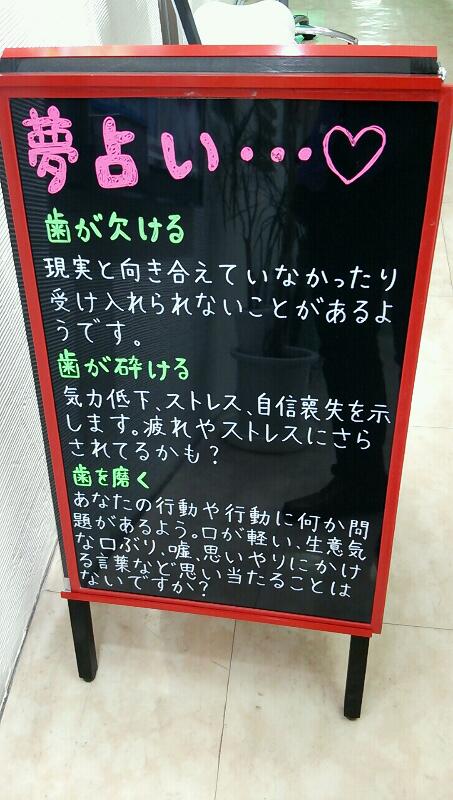 夢占い・・・♡
歯が欠ける
現実と向き合えていなかったり
受け入れられないことがあるよ
うです。
歯が砕ける
気力低下、ストレス、自信喪失を示
します。疲れやストレスにさら
されてるかも？
歯を磨く
あなたの行動や行動に何か問
題があるよう。口が軽い、生意気
な口ぶり、嘘、思いやりにかけ
る言葉など思い当たることは
ないですか？